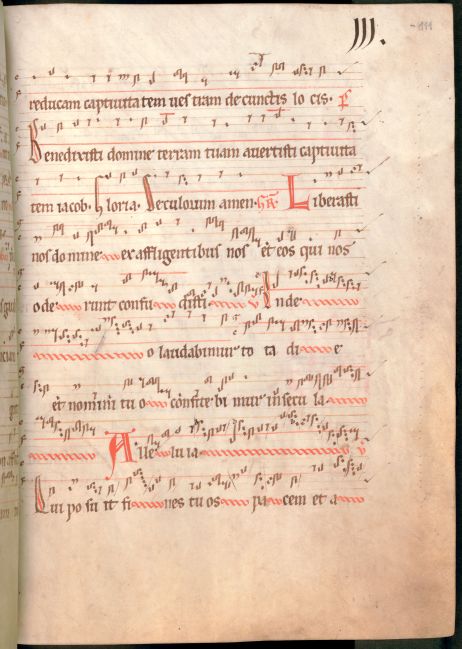 III. -111
reducam captivitatem vestram de cunctis lo cis. 
Benedixisti domine terram tuam avertisti captivita
tem iacob. Gloria. Seculorum amen. Liberasti
nos do mine ex affligentibus nos et eos qui nos
ode runt confu Inde
o laudabimur to ta di e
et nomini tu o confite bi mur in secu la
Alle lu ia
Qui po su it fi nes tu os pa cem et a